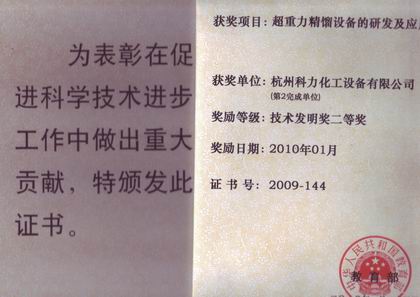 为表彰在促
进科学技术进步
工作中做出重大
贡献，特颁发此
证书。
获奖项目：超重力精馏设备的研发及应
获奖单位：杭州科力化工设备有限公司
(第2完成单位)
奖励等级：技术发明奖二等奖
奖励日期：2010年01月
证书号：2009-144
中华人民共和国教育
教育部